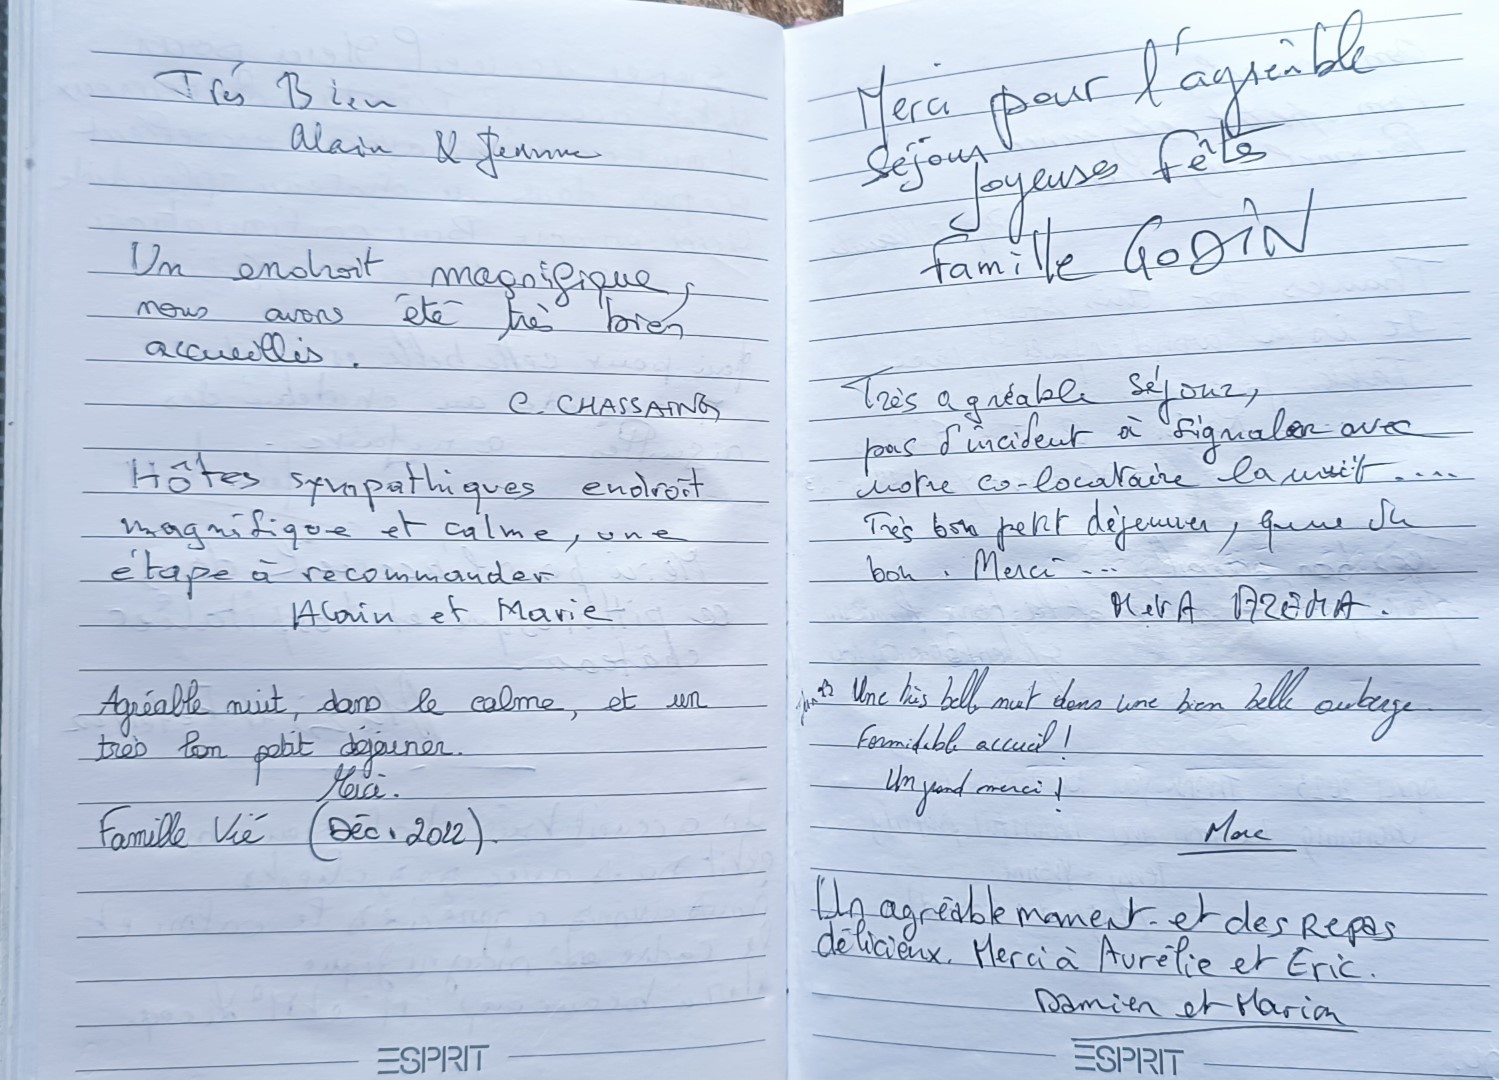 Très Bien
Alain & Jeanne
Un endroit magnifique,
nous avons été très bien
accueillis.
C. CHASSAING
Hôtes sympathiques endroit
magnifique et calme, une
étape à recommander
Alain et Marie
Agréable nuit, dans le calme, et un
très bon petit déjeuner.
Merci.
Famille Vié (Déc. 2022).
ESPRIT
Merci pour l'agréable
Séjour
Joyeuses Fêtes
famille GODIN
Très agréable séjour,
pas d'incident à signaler avec
notre co-locataire la nuit ....
Très bon petit déjeuner,
bon. Merci ...
Une très belle nuit dans une bien belle auberge.
Formidable accueil !
Un grand merci !
Marc
Un agréable moment et des Repas
délicieux. Merci à Aurélie et Eric.
Damien et Marion
ESPRIT